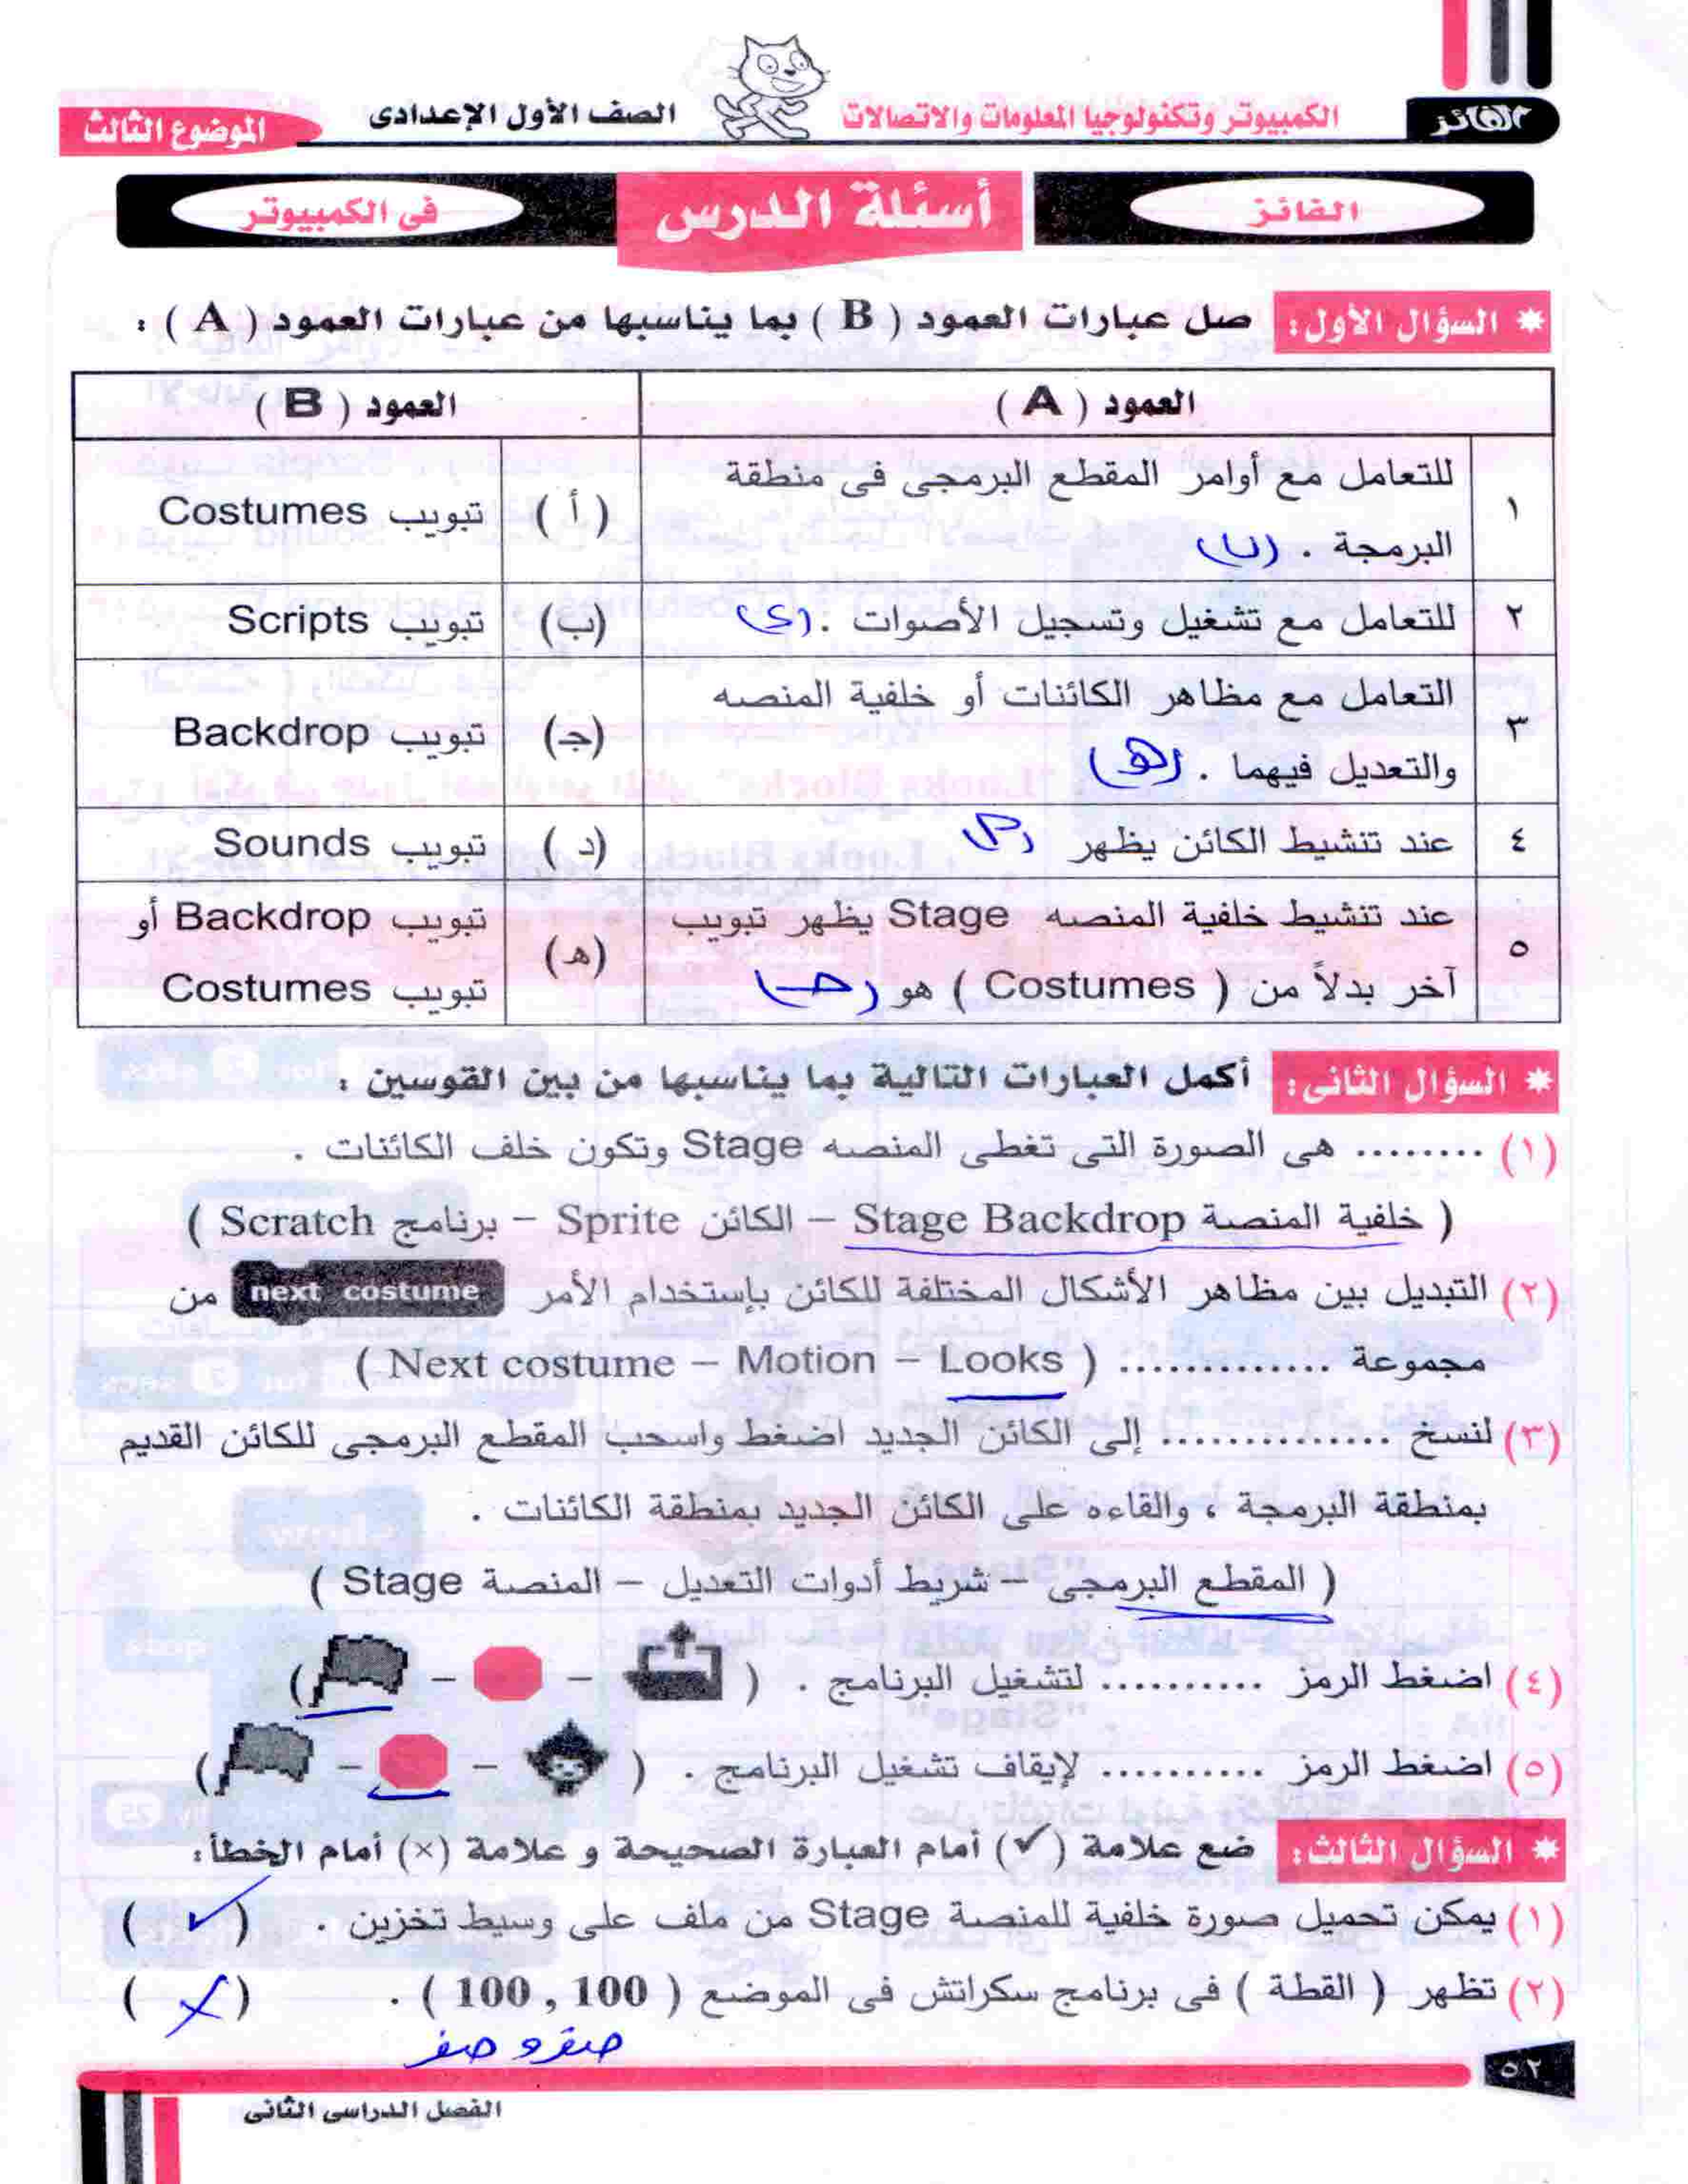 الفائز
الكمبيوتر وتكنولوجيا المعلومات والاتصالات
الصف الأول الإعدادى
الموضوع الثالث
الفائز
أسئلة الدرس
فى الكمبيوتر
* السؤال الأول: صل عبارات العمود ( B ) بما يناسبها من عبارات العمود ( A ) :
العمود ( A )
العمود ( B )
١
للتعامل مع أوامر المقطع البرمجى فى منطقة
البرمجة . (ب)
( أ )
تبويب Costumes
٢
للتعامل مع تشغيل وتسجيل الأصوات . (د)
(ب)
تبويب Scripts
٣
التعامل مع مظاهر الكائنات أو خلفية المنصه
والتعديل فيهما . (هـ)
(جـ)
تبويب Backdrop
٤
عند تنشيط الكائن يظهر
( د )
تبويب Sounds
٥
عند تنشيط خلفية المنصه Stage يظهر تبويب
آخر بدلاً من ( Costumes ) هو (حـ)
(هـ)
تبويب Backdrop أو
تبويب Costumes
* السؤال الثانى: أكمل العبارات التالية بما يناسبها من بين القوسين :
(١) ........ هى الصورة التى تغطى المنصه Stage وتكون خلف الكائنات .
( خلفية المنصة Stage Backdrop – الكائن Sprite – برنامج Scratch )
(٢) التبديل بين مظاهر الأشكال المختلفة للكائن بإستخدام الأمر next costume من
مجموعة ............. ( Next costume – Motion – Looks )
(٣) لنسخ .............. إلى الكائن الجديد اضغط واسحب المقطع البرمجى للكائن القديم
بمنطقة البرمجة ، والقاءه على الكائن الجديد بمنطقة الكائنات .
( المقطع البرمجى – شريط أدوات التعديل – المنصة Stage )
(٤) اضغط الرمز .......... لتشغيل البرنامج . ( – – )
(٥) اضغط الرمز .......... لإيقاف تشغيل البرنامج . ( – – )
* السؤال الثالث: ضع علامة (✓) أمام العبارة الصحيحة و علامة (×) أمام الخطأ:
(١) يمكن تحميل صورة خلفية للمنصة Stage من ملف على وسيط تخزين . (✓)
(٢) تظهر ( القطة ) فى برنامج سكراتش فى الموضع ( 100 , 100 ) . (×)
صفر و صفر
٥٢
الفصل الدراسى الثانى